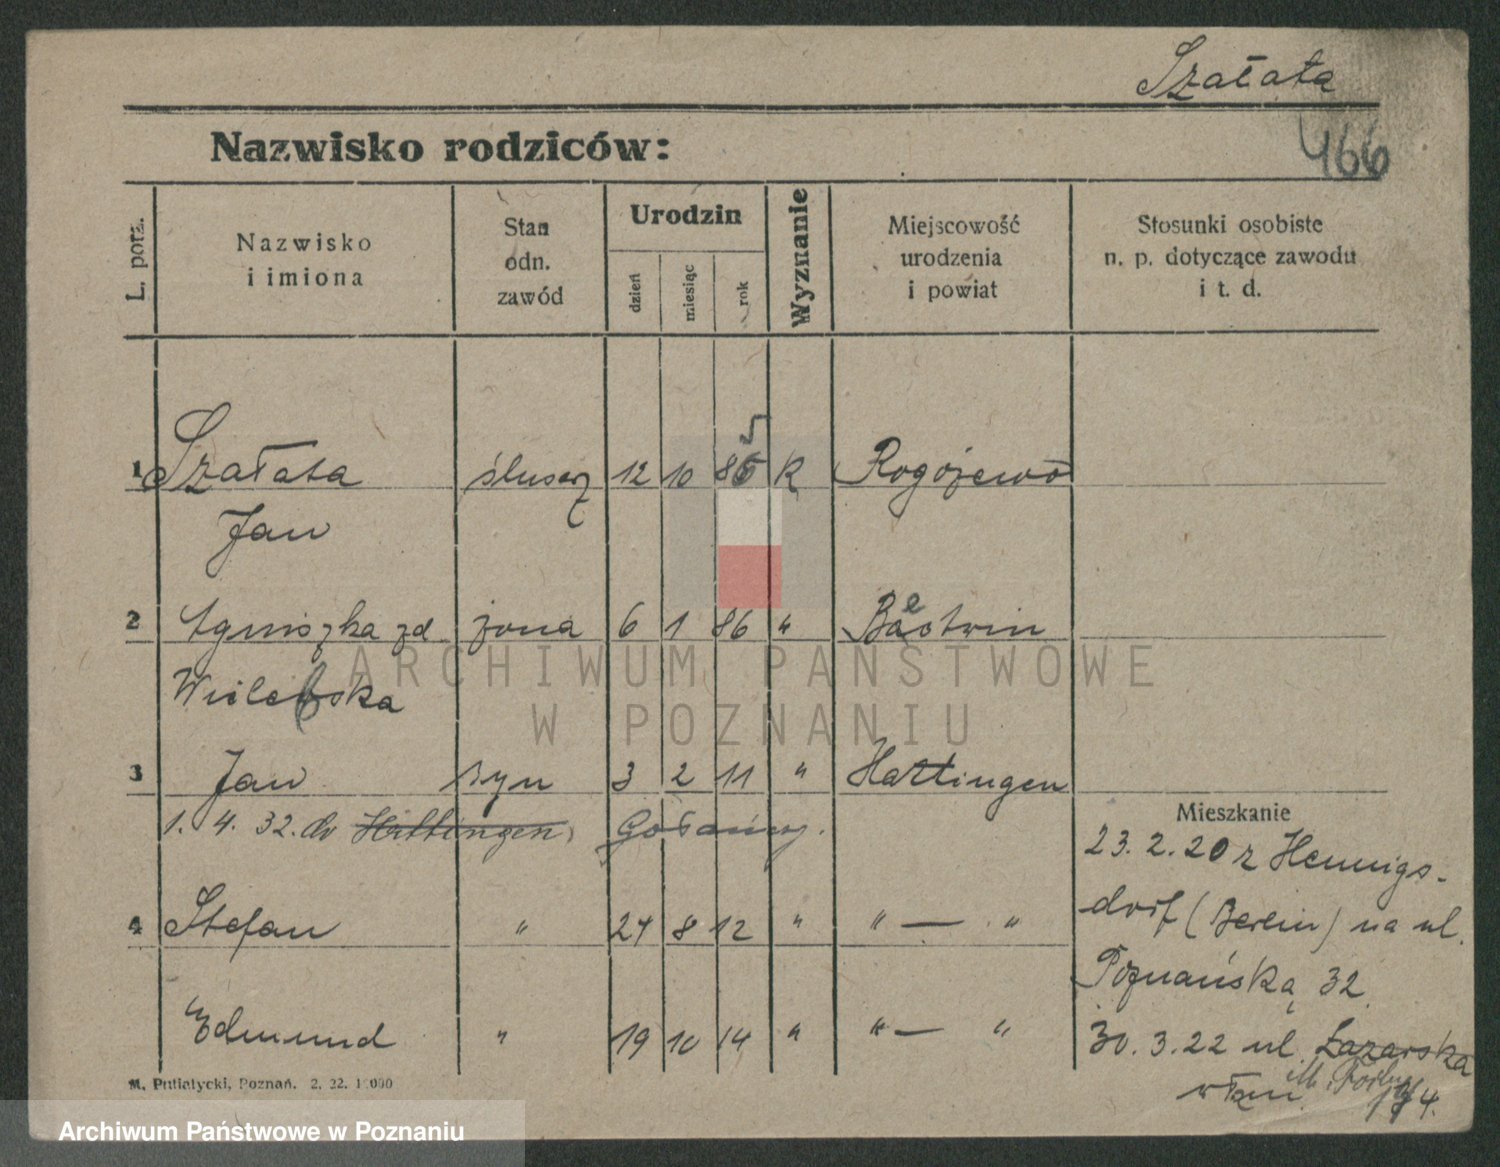 Szałata
466
Nazwisko rodziców:
L. porz.
Nazwisko
i imiona
Stan
odn.
zawód
Urodzin
dzień
miesiąc
rok
Wyznanie
Miejscowość
urodzenia
i powiat
Stosunki osobiste
n. p. dotyczące zawodu
i t. d.
1 Szałata ślusarz 12 10 85 k Rogojewo
Jan
2 Agniszka zd żona 6 1 86 " Bestwin
Wielebska
3 Jan syn 3 2 11 " Hattingen
1. 4. 32. do Hattingen, Gołańcz.
4 Stefan " 24 8 12 " " — "
Edmund " 19 10 14 " " — "
Mieszkanie
23. 2. 20 z Hennigs-
dorf (Berlin) na ul.
Poznańską 32
30. 3. 22 ul. Łazarska
14.
M. Putiatycki, Poznań. 2. 22. 1 000
ARCHIWUM PAŃSTWOWE
W POZNANIU
Archiwum Państwowe w Poznaniu